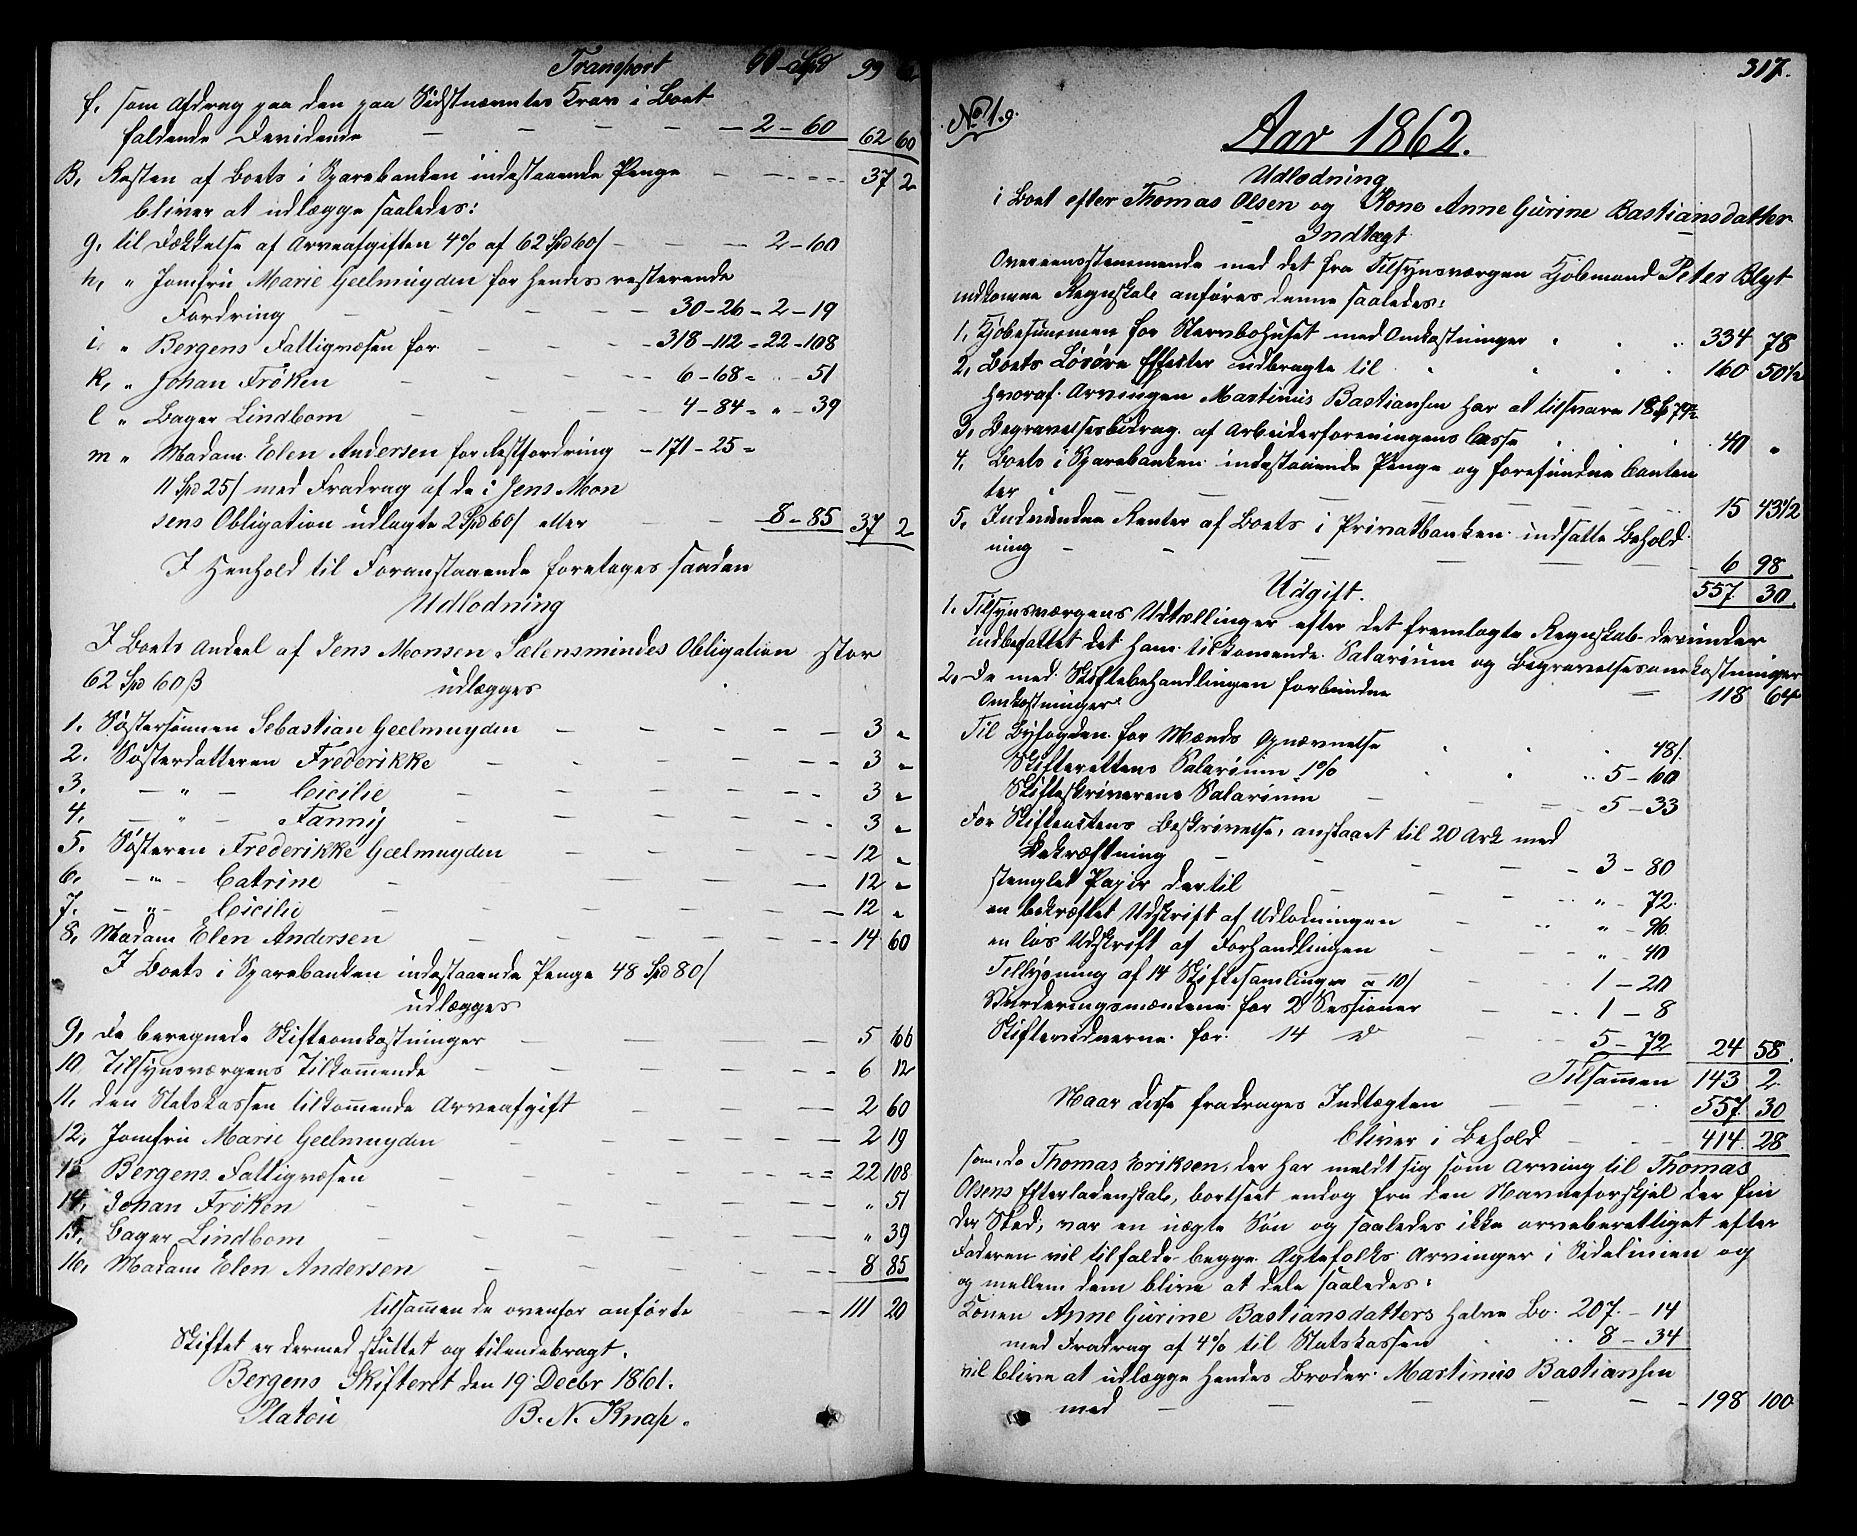 Transport 60 - Spd 99 6
f, som Afdrag paa den paa Sidstnævntes Krav i Boet
faldende Devidende — 2 - 60 62 60
B, Resten af Boets i Sparebanken indestaaende Penge — 37 2
bliver at udlægge saaledes:
g, til Dækkelse af Arveafgiften 4% af 62 Spd 60/ — 2 - 60
h, " Jomfru Marie Geelmuyden for hendes resterende
Fordring — 30 - 26 - 2 - 19
i " Bergens Fattigvæsen for — 318 - 112 - 22 - 108
k, " Johan Frøken — 6 - 68 - " - 51
l " Bager Lindbom — 4 - 84 - " - 39
m " Madam Elen Andersen for Restfordring - 171 - 25 -
11 Spd 25/ med Fradrag af de i Jens Mon
sens Obligation udlagte 2 Spd 60/ eller — 8 - 85 37 2
I Henhold til Foranstaaende foretages saadan
Udlodning
I Boets Andeel af Jens Monsen Sælensmindes Obligation stor
62 Spd 60 ß udlægges
1. Søstersønnen Sebastian Geelmuyden — 3 "
2. Søsterdatteren Frederikke — 3 "
3. — " — Cicilie — 3 "
4, — " — Fanny — 3 "
5. Søsteren Frederikke Geelmuyden — 12 "
6, — " — Catrine — 12 "
7. — " — Cicilie — 12 "
8, Madam Elen Andersen — 14 60
I Boets i Sparebanken indestaaende Penge 48 Spd 80/
udlægges
9, De beregnede Skifteomkostninger — 5 66
10 Tilsynsværgens Tilkommende — 6 12
11, den Statskassen tilkommende Arveafgift — 2 60
12, Jomfru Marie Geelmuyden — 2 19
13 Bergens Fattigvæsen — 22 108
14, Johan Frøken — " 51
15, Bager Lindbom — " 39
16, Madam Elen Andersen — 8 85
tilsammen de ovenfor anførte — 111 20
Skiftet er dermed sluttet og tilendebragt.
Bergens Skifteret den 19 Decbr 1861.
Platou B. N. Knap.
317.
No 1.
Aar 1862.
Udlodning
i Boet efter Thomas Olsen og Kone Anne Gurine Bastiansdatter
Indtægt
Overeensstemmende med det fra Tilsynsværgen Kjøbmand Peter Blyt
indkomne Regnskab anføres denne saaledes:
1, Kjøbesummen for Stervbohuset med Omkostninger 334 78
2, Boets Løsøre Effecter udbragte til 160 50 1/2
hvoraf Arvingen Martinus Bastiansen har at tilsvare
3, Begravelsesbidrag af Arbeiderforeningens Casse 40 "
4, Boets i Sparebanken indestaaende Penge og forefundne Conten
ter — 15 43 1/2
5, Indvundne Renter af Boets i Privatbanken indsatte Behold
ning — 6 98
557 30
Udgift.
1. Tilsynsværgens Udtællinger efter det fremlagte Regnskab derunder
indbefattet det ham tilkommende Salarium og Begravelsesomkostninger
118 64
2, De med Skiftebehandlingen forbundne
Omkostninger:
Til Byfogden for Mænds Opnævnelse 48/.
Skifterettens Salarium 1% 5 - 60
Skifteskriverens Salarium — 5 - 33
For Skifteactens Beskrivelse, anslaaet til 20 Ark med
Bekræftning — 3 - 80
stemplet Papir dertil — " - 72.
en bekræftet Udskrift af Udlodningen — " - 96
en løs Udskrift af Forhandlingen — " - 40
Tillysning af 14 Skiftesamlinger a 10/ — 1 - 20
Vurderingsmændene for 2 Sessioner — 1 - 8
Skiftevidnerne for 14 D — 5 - 72 24 58.
Tilsammen 143 2
Naar disse fradrages Indtægten — 557 30
bliver i Behold — 414 28
som, da Thomas Eriksen, der har meldt sig som Arving til Thomas
Olsens Efterladenskab, bortseet endog fra den Navneforskjel der fin
der Sted, var en uægte Søn og saaledes ikke arveberettiget efter
Faderen vil tilfalde begge Ægtefolks Arvinger i Sidelinien og
og mellem dem blive at dele saaledes:
Konen Anne Gurine Bastiansdatters halve Bo. 207 - 14
med Fradrag af 4% til Statskassen 8 - 34
vil blive at udlægge hendes Broder Martinus Bastiansen
med — 198 100